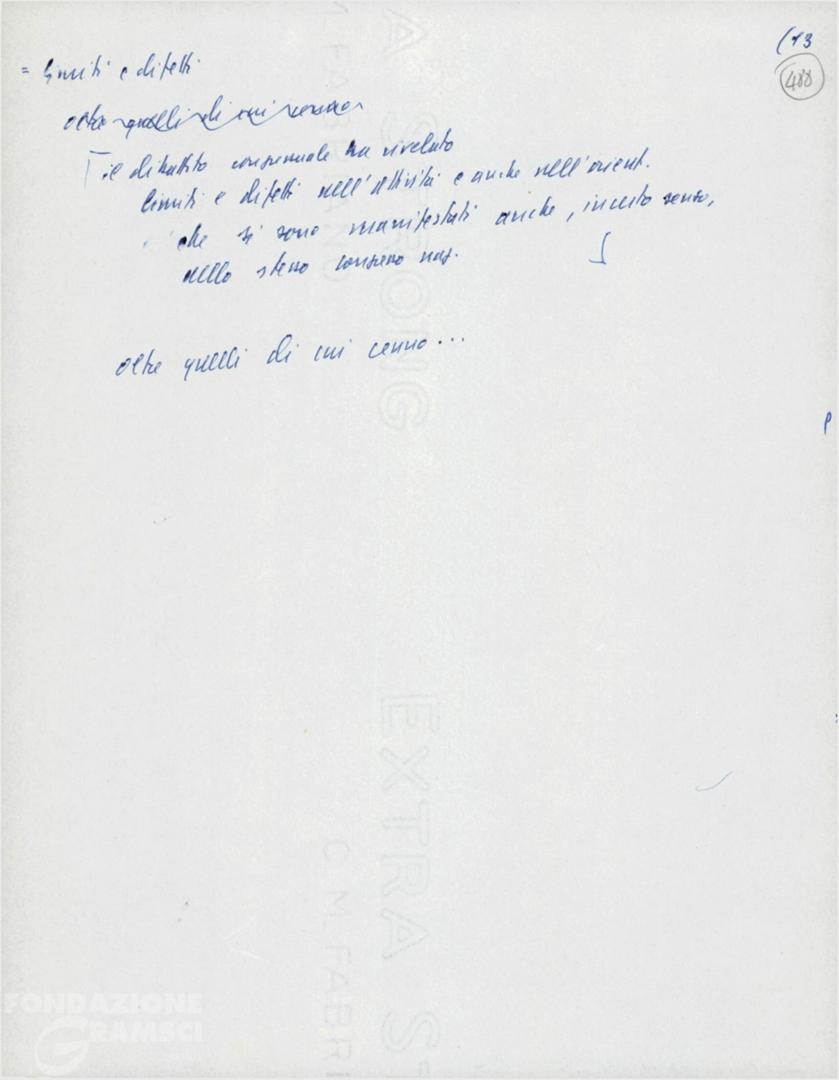 (13
488
= limiti e difetti
oltre quelli di cui cenno
il dibattito congressuale ha rivelato
limiti e difetti nell'attività e anche nell'orient.
che si sono manifestati anche, in certo senso,
nello stesso congresso naz.
oltre quelli di cui cenno...
A STRONG
EXTRA ST
C. M. FABRI
FONDAZIONE
GRAMSCI